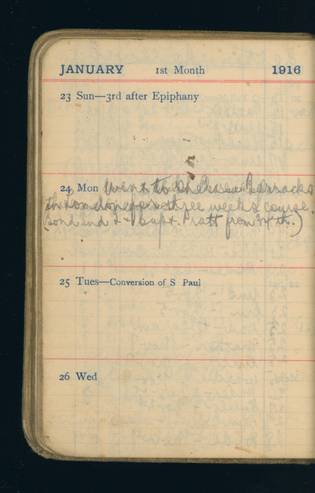 JANUARY 1st Month 1916
23 Sun—3rd after Epiphany
24 Mon Went to Chelsea Barracks
three weeks course.
Capt. Pratt from
25 Tues—Conversion of S Paul
26 Wed